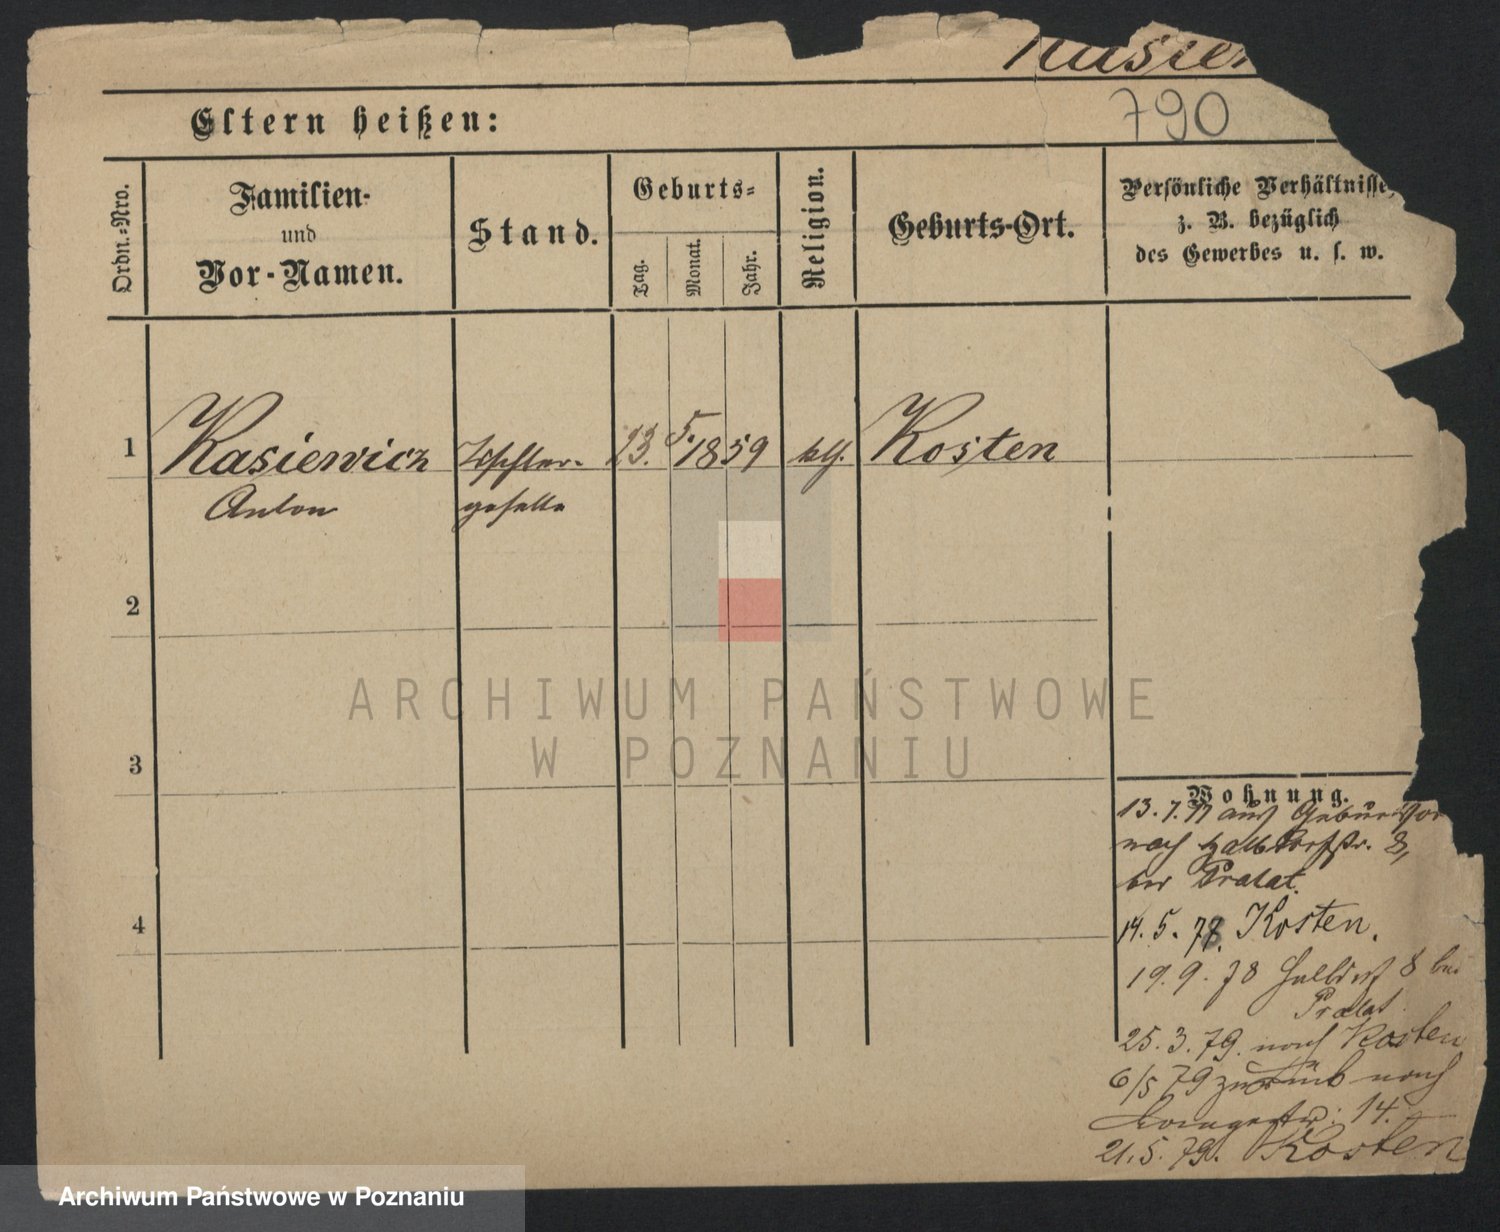 790
Eltern heißen:
Ordn.-Nro.
Familien-
und
Vor-Namen.
Stand.
Geburts-
Tag.
Monat.
Jahr.
Religion.
Geburts-Ort.
Persönliche Verhältnisse,
z. B. bezüglich
des Gewerbes u. s. w.
1 Kasiewicz Tischler- 13. 5. 1859 kth. Kosten
Anton geselle
2
3
4
ARCHIWUM PAŃSTWOWE
W POZNANIU
Wohnung.
13. 7. 77 aus
nach Halbdorfstr. 8,
bei Pralat.
14. 5. 78. Kosten.
19. 9. 78 Halbdorf 8 bei
Pralat.
25. 3. 79. nach Kosten
6/5 79 zurück nach
14.
21. 5. 79. Kosten
Archiwum Państwowe w Poznaniu